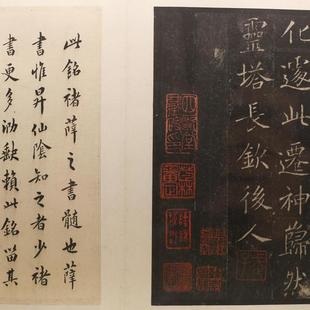 化此遷神巋然
靈塔長欽後人
此銘褚薛之書髓也薛
書惟昇仙陰知之者少褚
書更多泐賴此銘留其